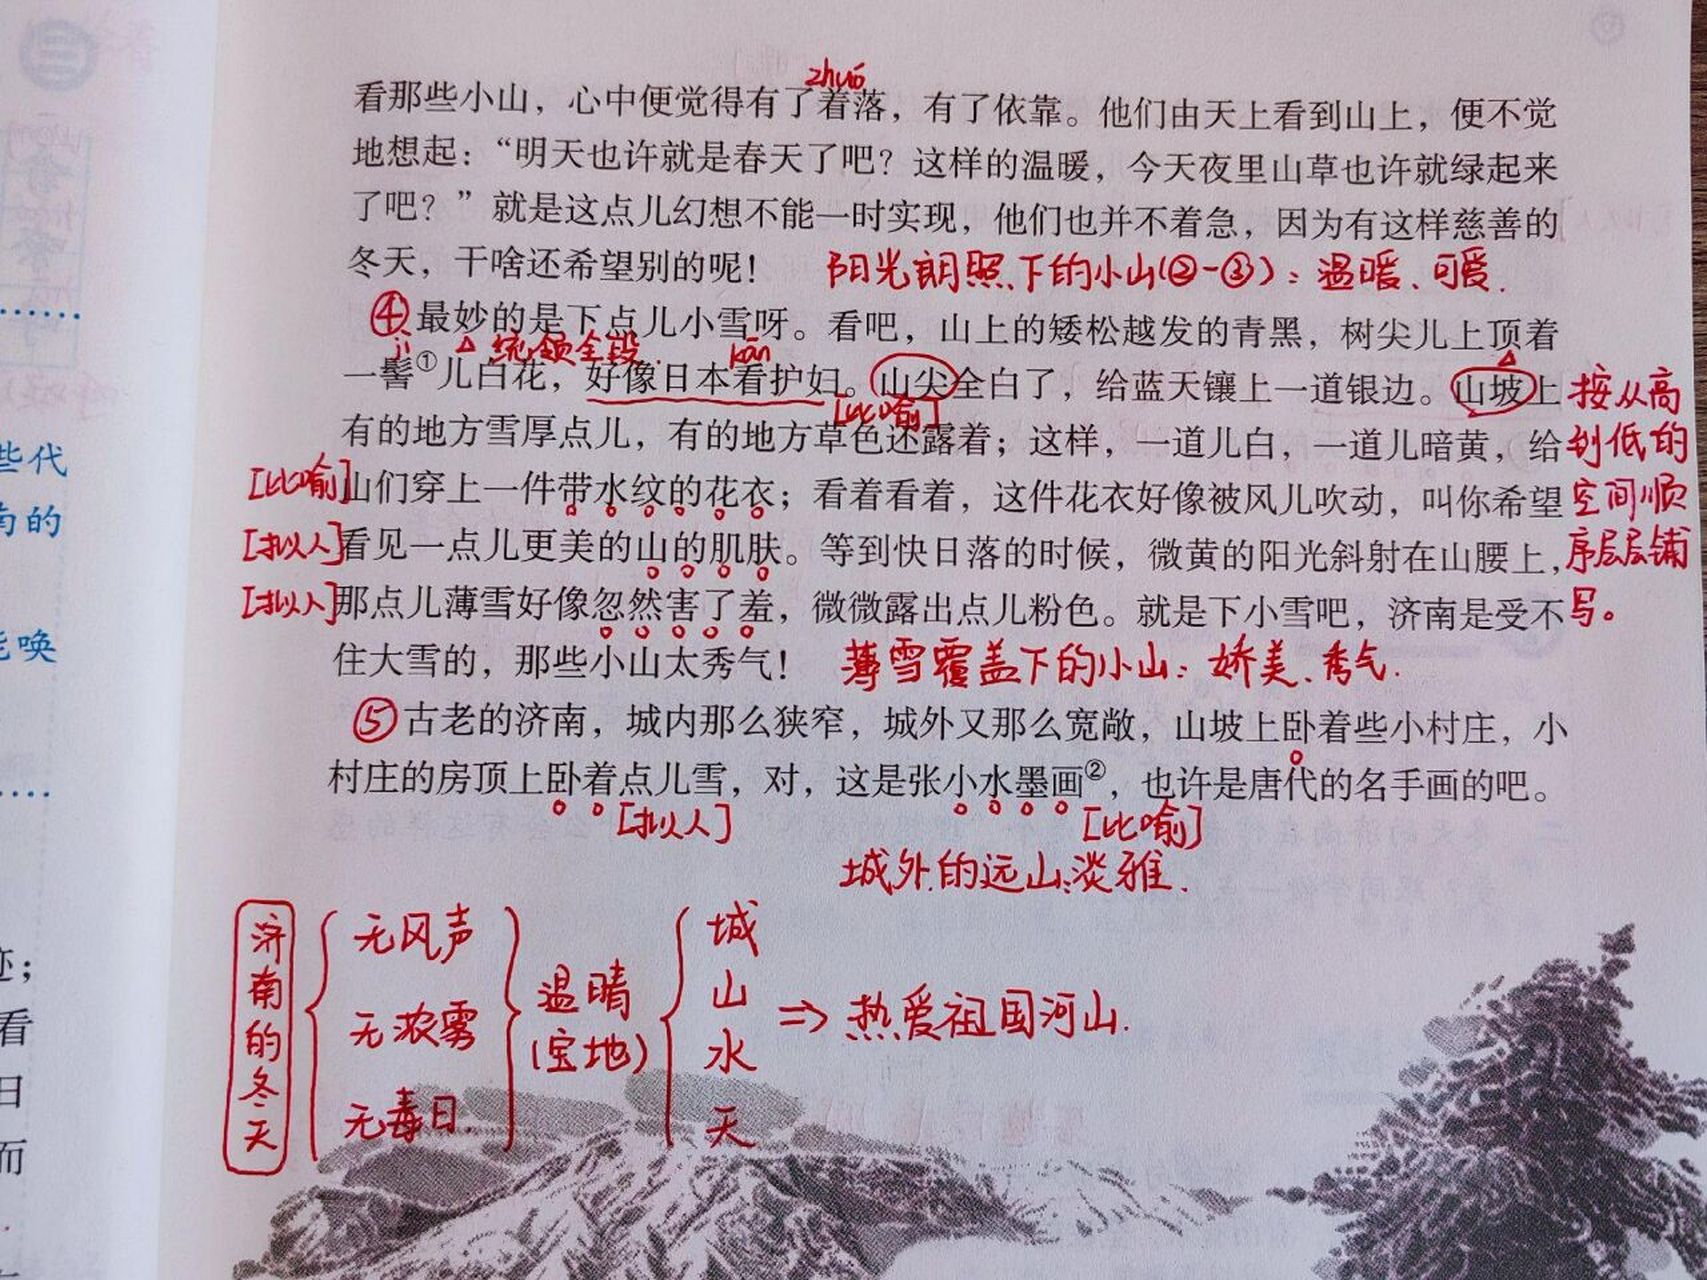 zhuó
看那些小山，心中便觉得有了着落，有了依靠。他们由天上看到山上，便不觉
地想起：“明天也许就是春天了吧？这样的温暖，今天夜里山草也许就绿起来
了吧？”就是这点儿幻想不能一时实现，他们也并不着急，因为有这样慈善的
冬天，干啥还希望别的呢！ 阳光朗照下的小山(②-③)：温暖、可爱.
④最妙的是下点儿小雪呀。看吧，山上的矮松越发的青黑，树尖儿上顶着
jì 统领全段. kān
一髻①儿白花，好像日本看护妇。山尖全白了，给蓝天镶上一道银边。山坡上 按从高
[比喻]
有的地方雪厚点儿，有的地方草色还露着；这样，一道儿白，一道儿暗黄，给 到低的
[比喻]山们穿上一件带水纹的花衣；看着看着，这件花衣好像被风儿吹动，叫你希望 空间顺
[拟人]看见一点儿更美的山的肌肤。等到快日落的时候，微黄的阳光斜射在山腰上， 序层层铺
[拟人]那点儿薄雪好像忽然害了羞，微微露出点儿粉色。就是下小雪吧，济南是受不 写。
住大雪的，那些小山太秀气！ 薄雪覆盖下的小山：娇美、秀气.
⑤古老的济南，城内那么狭窄，城外又那么宽敞，山坡上卧着些小村庄，小
村庄的房顶上卧着点儿雪，对，这是张小水墨画②，也许是唐代的名手画的吧。
[拟人] [比喻]
城外的远山：淡雅.
济南的冬天
无风声
无浓雾
无毒日.
温晴
(宝地)
城
山
水
天
⇒ 热爱祖国河山.
三
些代
南的
能唤
迹；
看
日
而